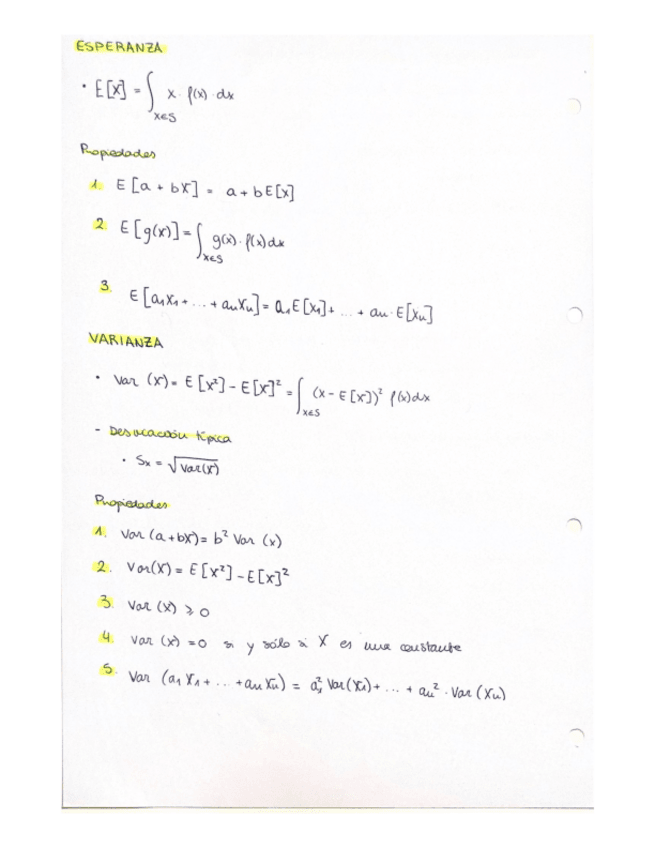 ESPERANZA
· E[X] = ∫x∈S x · f(x) · dx
Propiedades
1. E[a + bX] = a + bE[X]
2. E[g(X)] = ∫x∈S g(x) · f(x) dx
3. E[a₁X₁ + ... + aₙXₙ] = a₁E[X₁] + ... + aₙ · E[Xₙ]
VARIANZA
· Var (X) = E[X²] - E[X]² = ∫x∈S (x - E[X])² f(x) dx
- Desviación típica
· Sx = √Var(X)
Propiedades
1. Var (a+bX) = b² Var (X)
2. Var(X) = E[X²] - E[X]²
3. Var (X) ≥ 0
4. Var (X) = 0 si y sólo si X es una constante
5. Var (a₁X₁ + ... + aₙXₙ) = a₁² Var(X₁) + ... + aₙ² · Var (Xₙ)